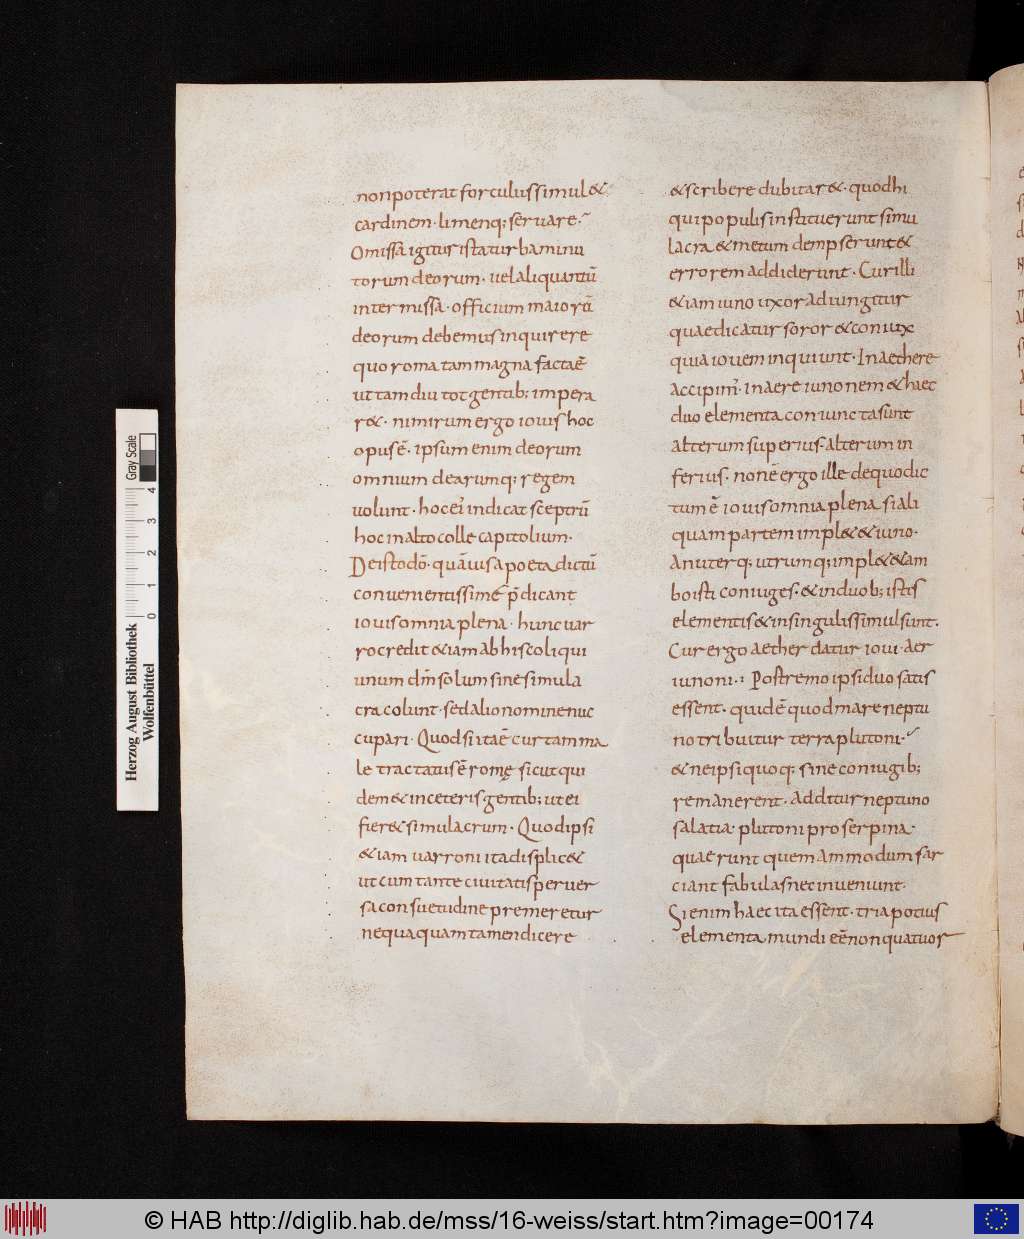 non poterat forculus simul &
cardinem · limenq; seruare ·
Omissa igitur ista turba minu
torum deorum · uel aliquantū
intermissa · officium maiorū
deorum debemus inquirere
quo roma tam magna facta ē
ut tam diu tot gentib; impera
r& · nimirum ergo iouis hoc
opus ē · ipsum enim deorum
omnium dearumq; regem
uolunt · hoc ei' indicat sceptrū
hoc in alto colle capitolium ·
De isto dō · quāuis a poeta dictū
conuenientissime p̄dicant
iouis omnia plena · hunc uar
ro credit &iam ab his coli qui
unum dm̄ solum sine simula
cra colunt · sed alio nomine nuc
cupari · Quod si ita ē cur tam ma
le tractatus ē romę sicut qui
dem & in ceteris gentib; ut ei
fier& simulacrum · Quod ipsi
&iam uarroni ita displic&
ut cum tante ciuitatis peruer
sa consuetudine premeretur
nequaquam tamen dicere
& scribere dubitar& · quod hi
qui populis instituerunt simu
lacra & metum dempserunt &
errorem addiderunt · Cur illi
&iam iuno uxor adiungitur
quae dicatur soror & coniux
quia iouem inquiunt · In aethere
accipim' · in aere iunonem & haec
duo elementa coniuncta sunt
alterum superius · alterum in
ferius · non ē ergo ille de quo dic
tum ē iouis omnia plena si ali
quam partem impl& & iuno ·
An uterq; utrumq; impl& & am
bo isti coniuges · & in duob; istis
elementis & in singulis simul sunt ·
Cur ergo aether datur ioui · aer
iunoni · Postremo ipsi duo satis
essent · quid ē quod mare neptu
no tribuitur terra plutoni ·
& ne ipsi quoq; sine coniugib;
remanerent · additur neptuno
salatia · plutoni proserpina ·
quaerunt quem ammodum sar
ciant fabulas nec inueniunt ·
Si enim haec ita essent · tria potius
elementa mundi eē non quatuor
Herzog August Bibliothek
Wolfenbüttel
0 1 2 3 4
Gray Scale
© HAB http://diglib.hab.de/mss/16-weiss/start.htm?image=00174